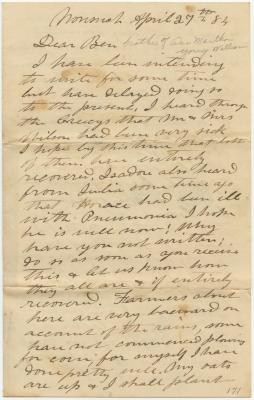 April 27th 84
Dear Ben brother of
I have been intending
to write for some time
but have delayed doing so
to the present, I heard through
the that Mr & Mrs
Wilson had been very sick
I hope by this time that both
of them have entirely
recovered. Isadore also heard
from Julia some time ago
that Horace had been ill
with Pneumonia I hope
he is well now! Why
have you not written;
do so as soon as you receive
this & let us know how
they all are & if entirely
recovered. Farmers about
here are very backward on
account of the rains, some
have not commenced plowing
for corn; for myself I have
done pretty well. My oats
are up & I shall plant
171